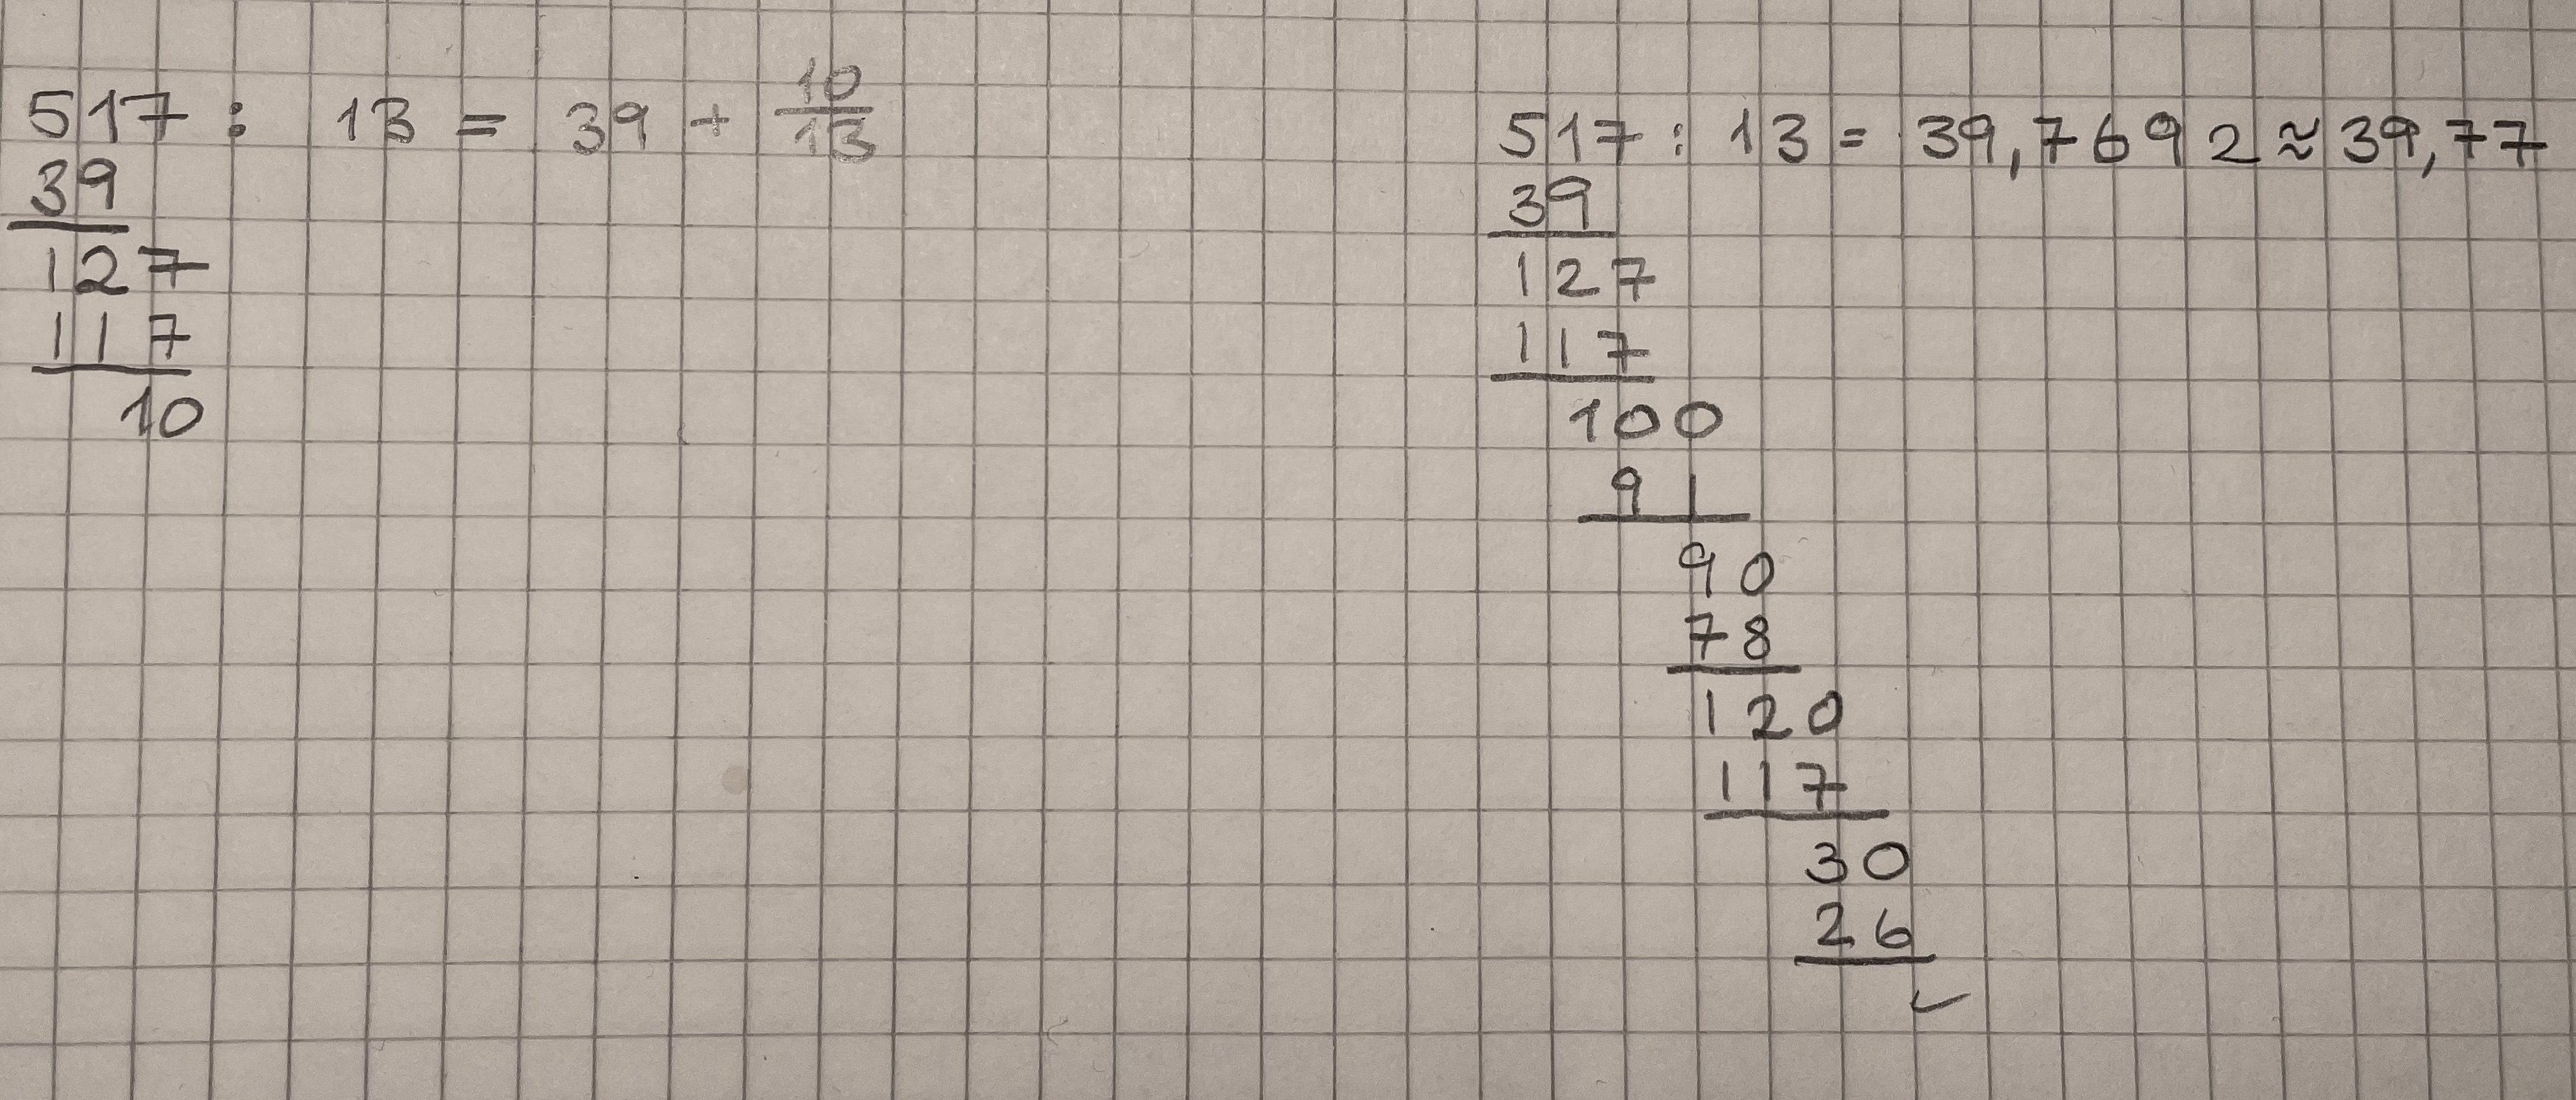 517 : 13 = 39 + 10/13
39
127
117
10
517 : 13 = 39,7692 ≈ 39,77
39
127
117
100
91
90
78
120
117
30
26
✓